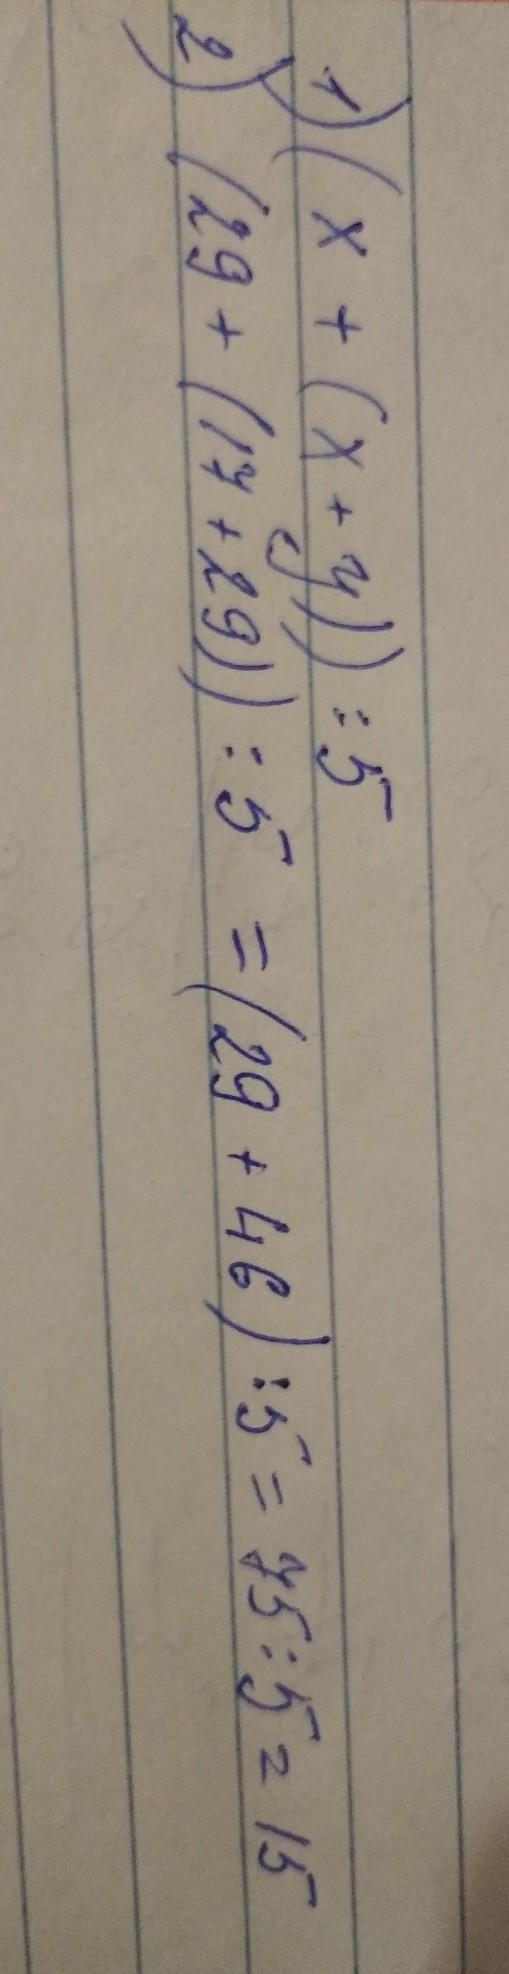 1) (x + (x + y)) : 5
2) (29 + (17 + 29)) : 5 = (29 + 46) : 5 = 75 : 5 = 15